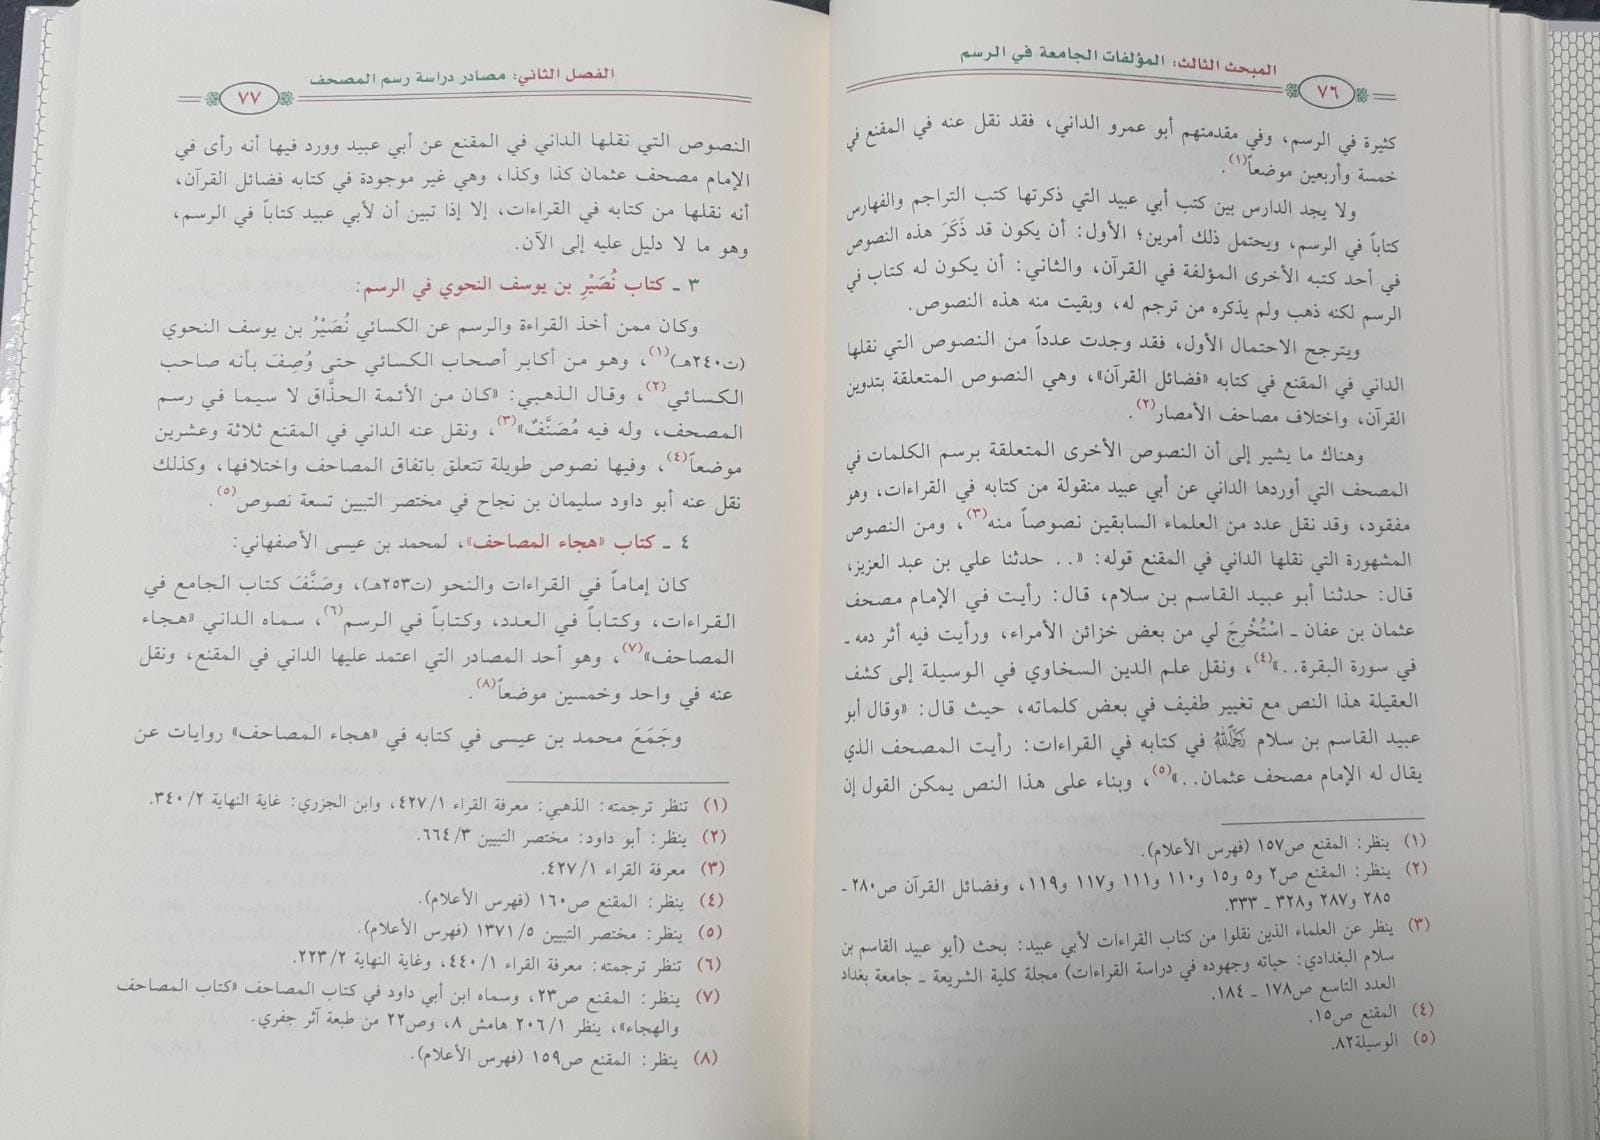 المبحث الثالث: المؤلفات الجامعة في الرسم
٧٦
كثيرة في الرسم، وفي مقدمتهم أبو عمرو الداني، فقد نقل عنه في المقنع في
خمسة وأربعين موضعاً(١).
ولا يجد الدارس بين كتب أبي عبيد التي ذكرتها كتب التراجم والفهارس
كتاباً في الرسم، ويحتمل ذلك أمرين؛ الأول: أن يكون قد ذَكَرَ هذه النصوص
في أحد كتبه الأخرى المؤلفة في القرآن، والثاني: أن يكون له كتاب في
الرسم لكنه ذهب ولم يذكره من ترجم له، وبقيت منه هذه النصوص.
ويترجح الاحتمال الأول، فقد وجدت عدداً من النصوص التي نقلها
الداني في المقنع في كتابه «فضائل القرآن»، وهي النصوص المتعلقة بتدوين
القرآن، واختلاف مصاحف الأمصار(٢).
وهناك ما يشير إلى أن النصوص الأخرى المتعلقة برسم الكلمات في
المصحف التي أوردها الداني عن أبي عبيد منقولة من كتابه في القراءات، وهو
مفقود، وقد نقل عدد من العلماء السابقين نصوصاً منه(٣)، ومن النصوص
المشهورة التي نقلها الداني في المقنع قوله: «.. حدثنا علي بن عبد العزيز،
قال: حدثنا أبو عبيد القاسم بن سلام، قال: رأيت في الإمام مصحف
عثمان بن عفان ـ اسْتُخْرِجَ لي من بعض خزائن الأمراء، ورأيت فيه أثر دمه ـ
في سورة البقرة..»(٤)، ونقل علم الدين السخاوي في الوسيلة إلى كشف
العقيلة هذا النص مع تغيير طفيف في بعض كلماته، حيث قال: «وقال أبو
عبيد القاسم بن سلام رحمه الله في كتابه في القراءات: رأيت المصحف الذي
يقال له الإمام مصحف عثمان..»(٥)، وبناء على هذا النص يمكن القول إن
(١) ينظر: المقنع ص١٥٧ (فهرس الأعلام).
(٢) ينظر: المقنع ص٢ و٥ و١٥ و١١٠ و١١١ و١١٧ و١١٩، وفضائل القرآن ص٢٨٠ ـ
٢٨٥ و٢٨٧ و٣٢٨ ـ ٣٣٣.
(٣) ينظر عن العلماء الذين نقلوا من كتاب القراءات لأبي عبيد: بحث (أبو عبيد القاسم بن
سلام البغدادي: حياته وجهوده في دراسة القراءات) مجلة كلية الشريعة ـ جامعة بغداد
العدد التاسع ص١٧٨ ـ ١٨٤.
(٤) المقنع ص١٥.
(٥) الوسيلة٨٢.
الفصل الثاني: مصادر دراسة رسم المصحف
٧٧
النصوص التي نقلها الداني في المقنع عن أبي عبيد وورد فيها أنه رأى في
الإمام مصحف عثمان كذا وكذا، وهي غير موجودة في كتابه فضائل القرآن،
أنه نقلها من كتابه في القراءات، إلا إذا تبين أن لأبي عبيد كتاباً في الرسم،
وهو ما لا دليل عليه إلى الآن.
٣ ـ كتاب نُصَيْرِ بن يوسف النحوي في الرسم:
وكان ممن أخذ القراءة والرسم عن الكسائي نُصَيْرُ بن يوسف النحوي
(ت٢٤٠هـ)(١)، وهو من أكابر أصحاب الكسائي حتى وُصِفَ بأنه صاحب
الكسائي(٢)، وقال الذهبي: «كان من الأئمة الحذَّاق لا سيما في رسم
المصحف، وله فيه مُصَنَّفٌ»(٣)، ونقل عنه الداني في المقنع ثلاثة وعشرين
موضعاً(٤)، وفيها نصوص طويلة تتعلق باتفاق المصاحف واختلافها، وكذلك
نقل عنه أبو داود سليمان بن نجاح في مختصر التبيين تسعة نصوص(٥).
٤ ـ كتاب «هجاء المصاحف»، لمحمد بن عيسى الأصفهاني:
كان إماماً في القراءات والنحو (ت٢٥٣هـ)، وصَنَّفَ كتاب الجامع في
القراءات، وكتاباً في العدد، وكتاباً في الرسم(٦)، سماه الداني «هجاء
المصاحف»(٧)، وهو أحد المصادر التي اعتمد عليها الداني في المقنع، ونقل
عنه في واحد وخمسين موضعاً(٨).
وجَمَعَ محمد بن عيسى في كتابه في «هجاء المصاحف» روايات عن
(١) تنظر ترجمته: الذهبي: معرفة القراء ٤٢٧/١، وابن الجزري: غاية النهاية ٣٤٠/٢.
(٢) ينظر: أبو داود: مختصر التبيين ٦٦٤/٣.
(٣) معرفة القراء ٤٢٧/١.
(٤) ينظر: المقنع ص١٦٠ (فهرس الأعلام).
(٥) ينظر: مختصر التبيين ١٣٧١/٥ (فهرس الأعلام).
(٦) تنظر ترجمته: معرفة القراء ٤٤٠/١، وغاية النهاية ٢٢٣/٢.
(٧) ينظر: المقنع ص٢٣، وسماه ابن أبي داود في كتاب المصاحف «كتاب المصاحف
والهجاء»، ينظر ٢٠٦/١ هامش ٨، وص٢٢ من طبعة آثر جفري.
(٨) ينظر: المقنع ص١٥٩ (فهرس الأعلام).